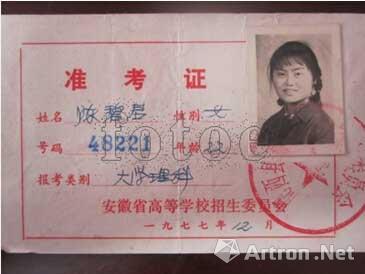 准考证
姓名 陈碧君 性别 女
号码 48221 年龄 22
报考类别 大学理科
安徽省高等学校招生委员会
一九七七年12月
fotoe
Artron.Net